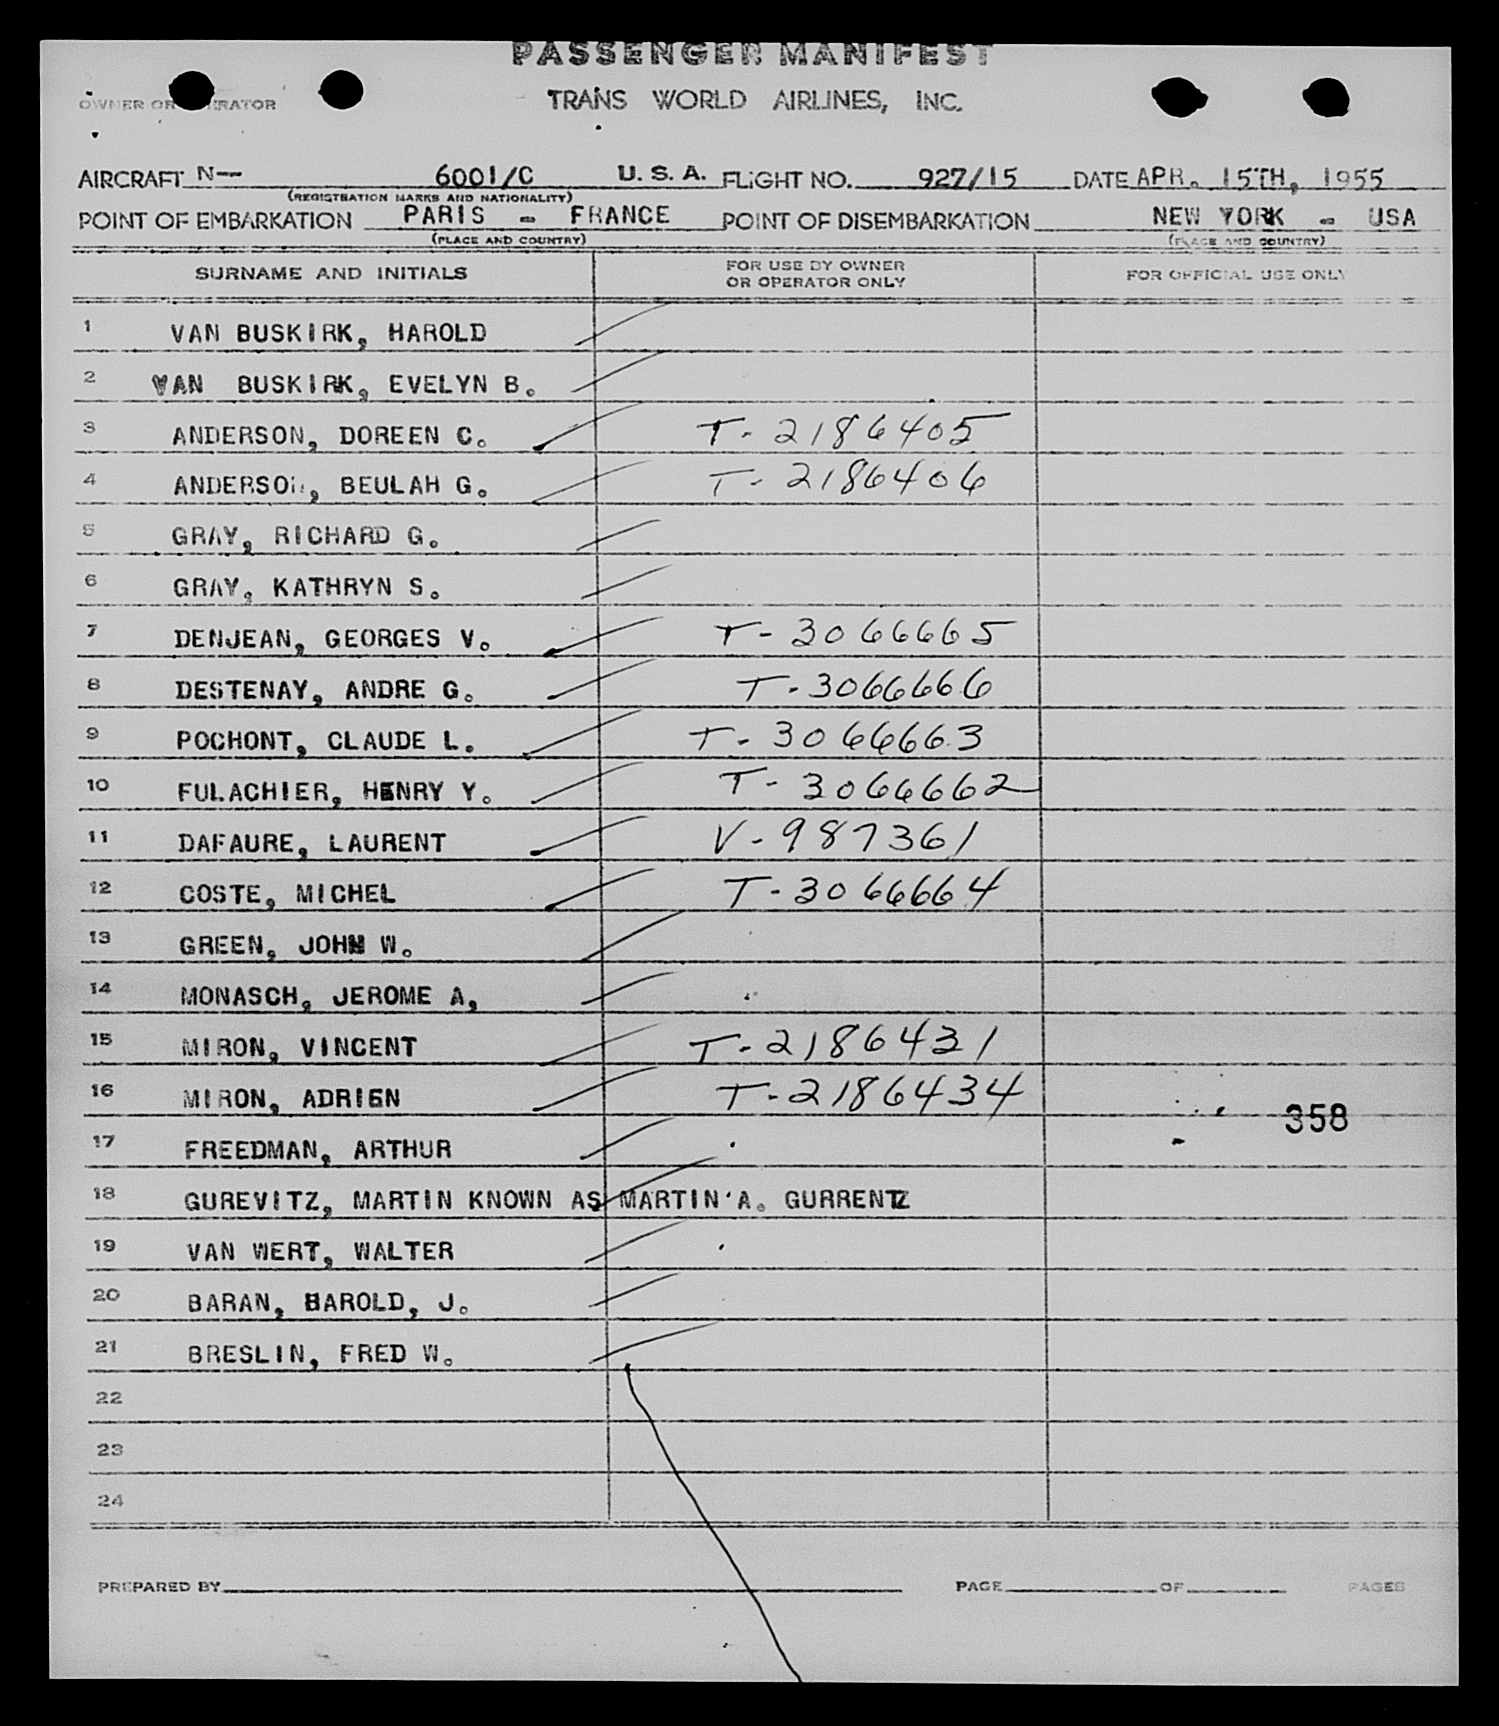 PASSENGER MANIFEST
OWNER OR OPERATOR TRANS WORLD AIRLINES, INC.
AIRCRAFT N-- 6001/C U.S.A. FLIGHT NO. 927/15 DATE APR. 15TH, 1955
(REGISTRATION MARKS AND NATIONALITY)
POINT OF EMBARKATION PARIS - FRANCE POINT OF DISEMBARKATION NEW YORK - USA
(PLACE AND COUNTRY) (PLACE AND COUNTRY)
SURNAME AND INITIALS FOR USE BY OWNER OR OPERATOR ONLY FOR OFFICIAL USE ONLY
1 VAN BUSKIRK, HAROLD
2 VAN BUSKIRK, EVELYN B.
3 ANDERSON, DOREEN C. T-2186405
4 ANDERSON, BEULAH G. T-2186406
5 GRAY, RICHARD G.
6 GRAY, KATHRYN S.
7 DENJEAN, GEORGES V. T-3066665
8 DESTENAY, ANDRE G. T-3066666
9 POCHONT, CLAUDE L. T-3066663
10 FULACHIER, HENRY Y. T-3066662
11 DAFAURE, LAURENT V-987361
12 COSTE, MICHEL T-3066664
13 GREEN, JOHN W.
14 MONASCH, JEROME A,
15 MIRON, VINCENT T-2186431
16 MIRON, ADRIEN T-2186434
358
17 FREEDMAN, ARTHUR
18 GUREVITZ, MARTIN KNOWN AS MARTIN A. GURRENTZ
19 VAN WERT, WALTER
20 BARAN, HAROLD, J.
21 BRESLIN, FRED W.
22
23
24
PREPARED BY PAGE OF PAGES